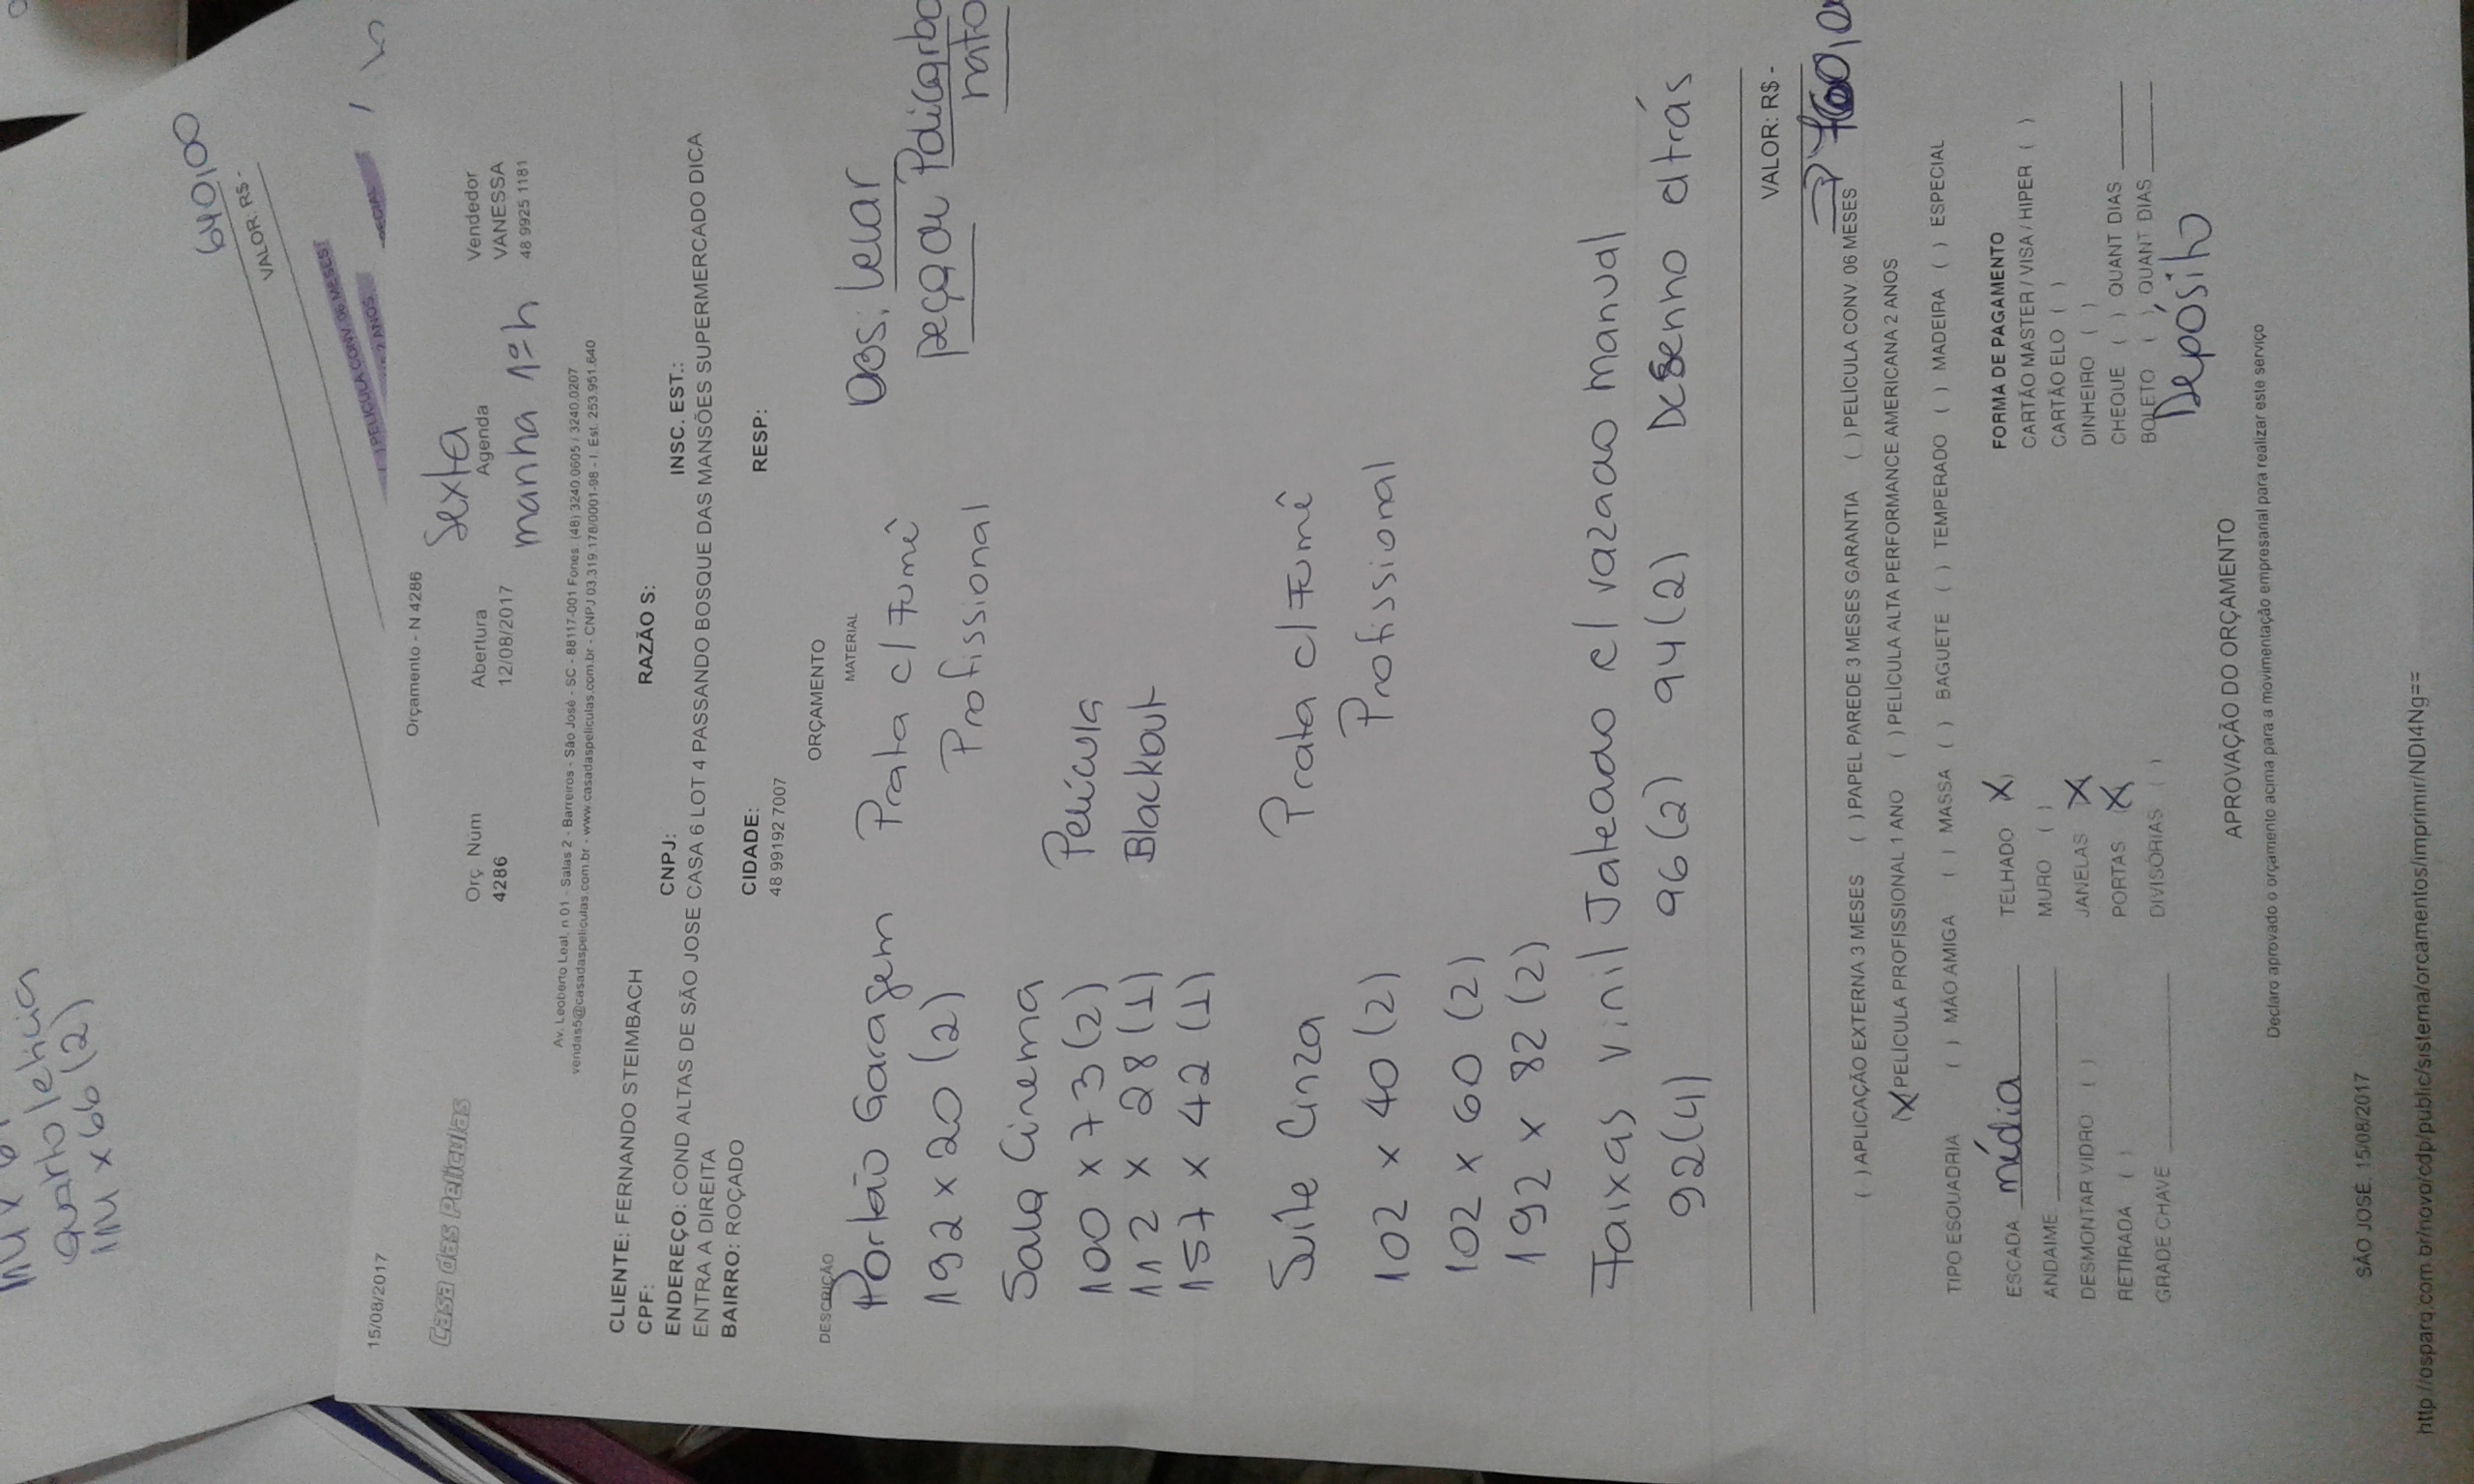 quarto leticia
114 x 66 (2)
640,00
VALOR: R$ -
( ) PELÍCULA CONV. 06 MESES
2 ANOS
15/08/2017
Orçamento - N 4286
Casa das Películas
Orç. Núm
4286
Abertura
12/08/2017
Sexta
Agenda
manha 1º h
Vendedor
VANESSA
48 9925 1181
Av. Leoberto Leal, n 01 - Salas 2 - Barreiros - São José - SC - 88117-001 Fones: (48) 3240.0605 / 3240.0207
vendas5@casadaspeliculas.com.br - www.casadaspeliculas.com.br - CNPJ 03.319.178/0001-98 - I. Est. 253.951.640
CLIENTE: FERNANDO STEIMBACH RAZÃO S:
CPF: CNPJ: INSC. EST.:
ENDEREÇO: COND ALTAS DE SÃO JOSE CASA 6 LOT 4 PASSANDO BOSQUE DAS MANSÕES SUPERMERCADO DICA
ENTRA A DIREITA
BAIRRO: ROÇADO CIDADE: RESP:
48 99192 7007
ORÇAMENTO
DESCRIÇÃO MATERIAL
Portão Garagem Prata c/ Fumê OBS: Levar
192 x 20 (2) Profissional peça de Policarbo
nato
Sala Cinema
100 x 73 (2) Película
112 x 28 (1) Blackout
157 x 42 (1)
Suíte Cinza Prata c/ Fumê
102 x 40 (2) Profissional
102 x 60 (2)
192 x 82 (2)
Faixas Vinil Jateado c/ vazado manual
92(4) 96(2) 94(2) Desenho atrás
VALOR: R$ -
( ) APLICAÇÃO EXTERNA 3 MESES ( ) PAPEL PAREDE 3 MESES GARANTIA ( ) PELÍCULA CONV. 06 MESES
(X) PELÍCULA PROFISSIONAL 1 ANO ( ) PELÍCULA ALTA PERFORMANCE AMERICANA 2 ANOS
TIPO ESQUADRIA ( ) MÃO AMIGA ( ) MASSA ( ) BAGUETE ( ) TEMPERADO ( ) MADEIRA ( ) ESPECIAL
ESCADA média TELHADO X
ANDAIME MURO ( )
DESMONTAR VIDRO ( ) JANELAS X
RETIRADA ( ) PORTAS (X)
GRADE CHAVE DIVISÓRIAS ( )
FORMA DE PAGAMENTO
CARTÃO MASTER / VISA / HIPER ( )
CARTÃO ELO ( )
DINHEIRO ( )
CHEQUE ( ) QUANT DIAS
BOLETO ( ) QUANT DIAS
Depósito
APROVAÇÃO DO ORÇAMENTO
Declaro aprovado o orçamento acima para a movimentação empresarial para realizar este serviço
SÃO JOSÉ, 15/08/2017
http://osparq.com.br/novo/cdp/public/sistema/orcamentos/imprimir/NDI4Ng==